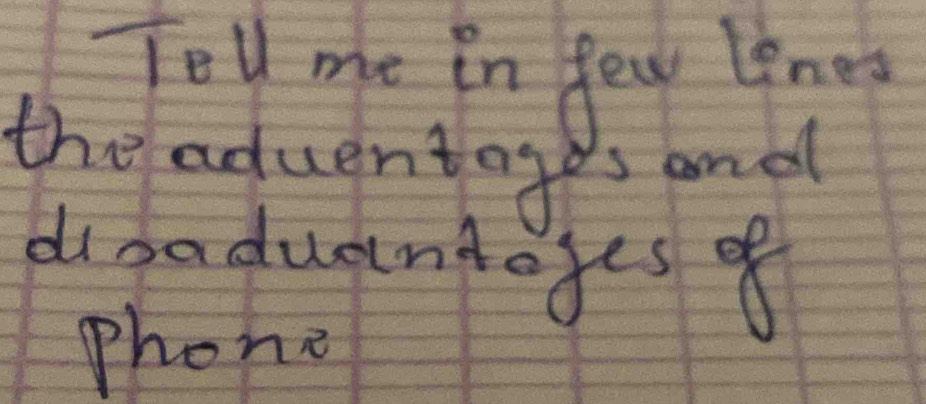 Tell me in few lines
the aduentages and
disaduantages of
phone